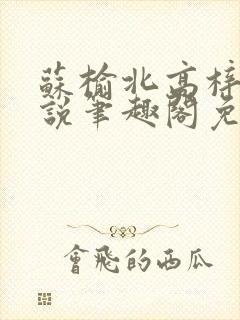 蘇榆北高梓
說筆趣閣免
會飛的西瓜